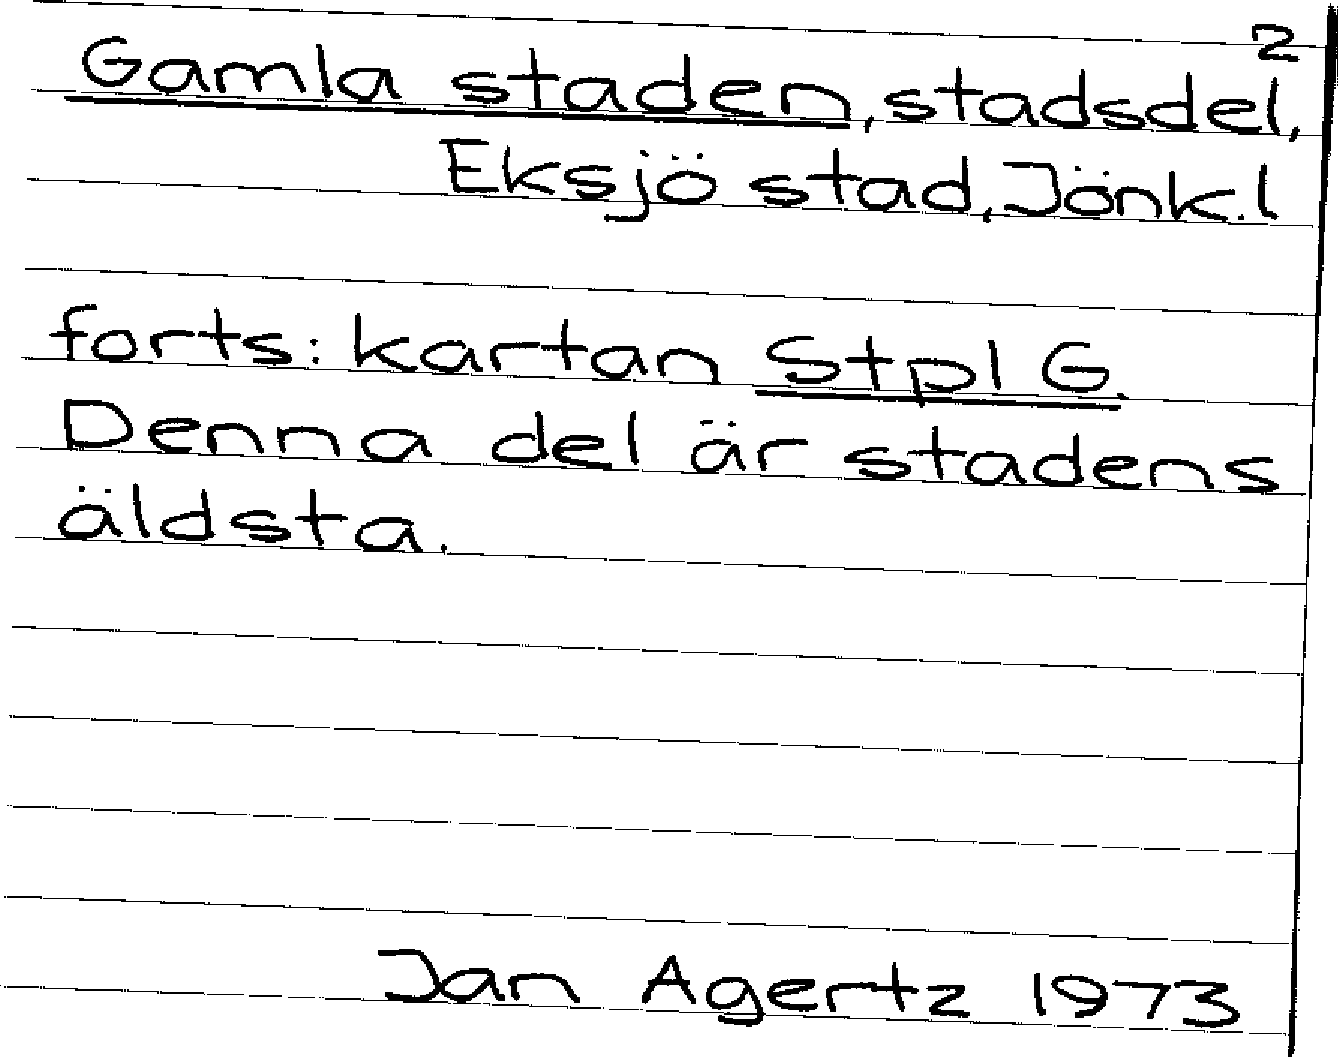 2
Gamla staden, stadsdel,
Eksjö stad, Jönk.l
forts: kartan Stpl G.
Denna del är stadens
äldsta.
Jan Agertz 1973